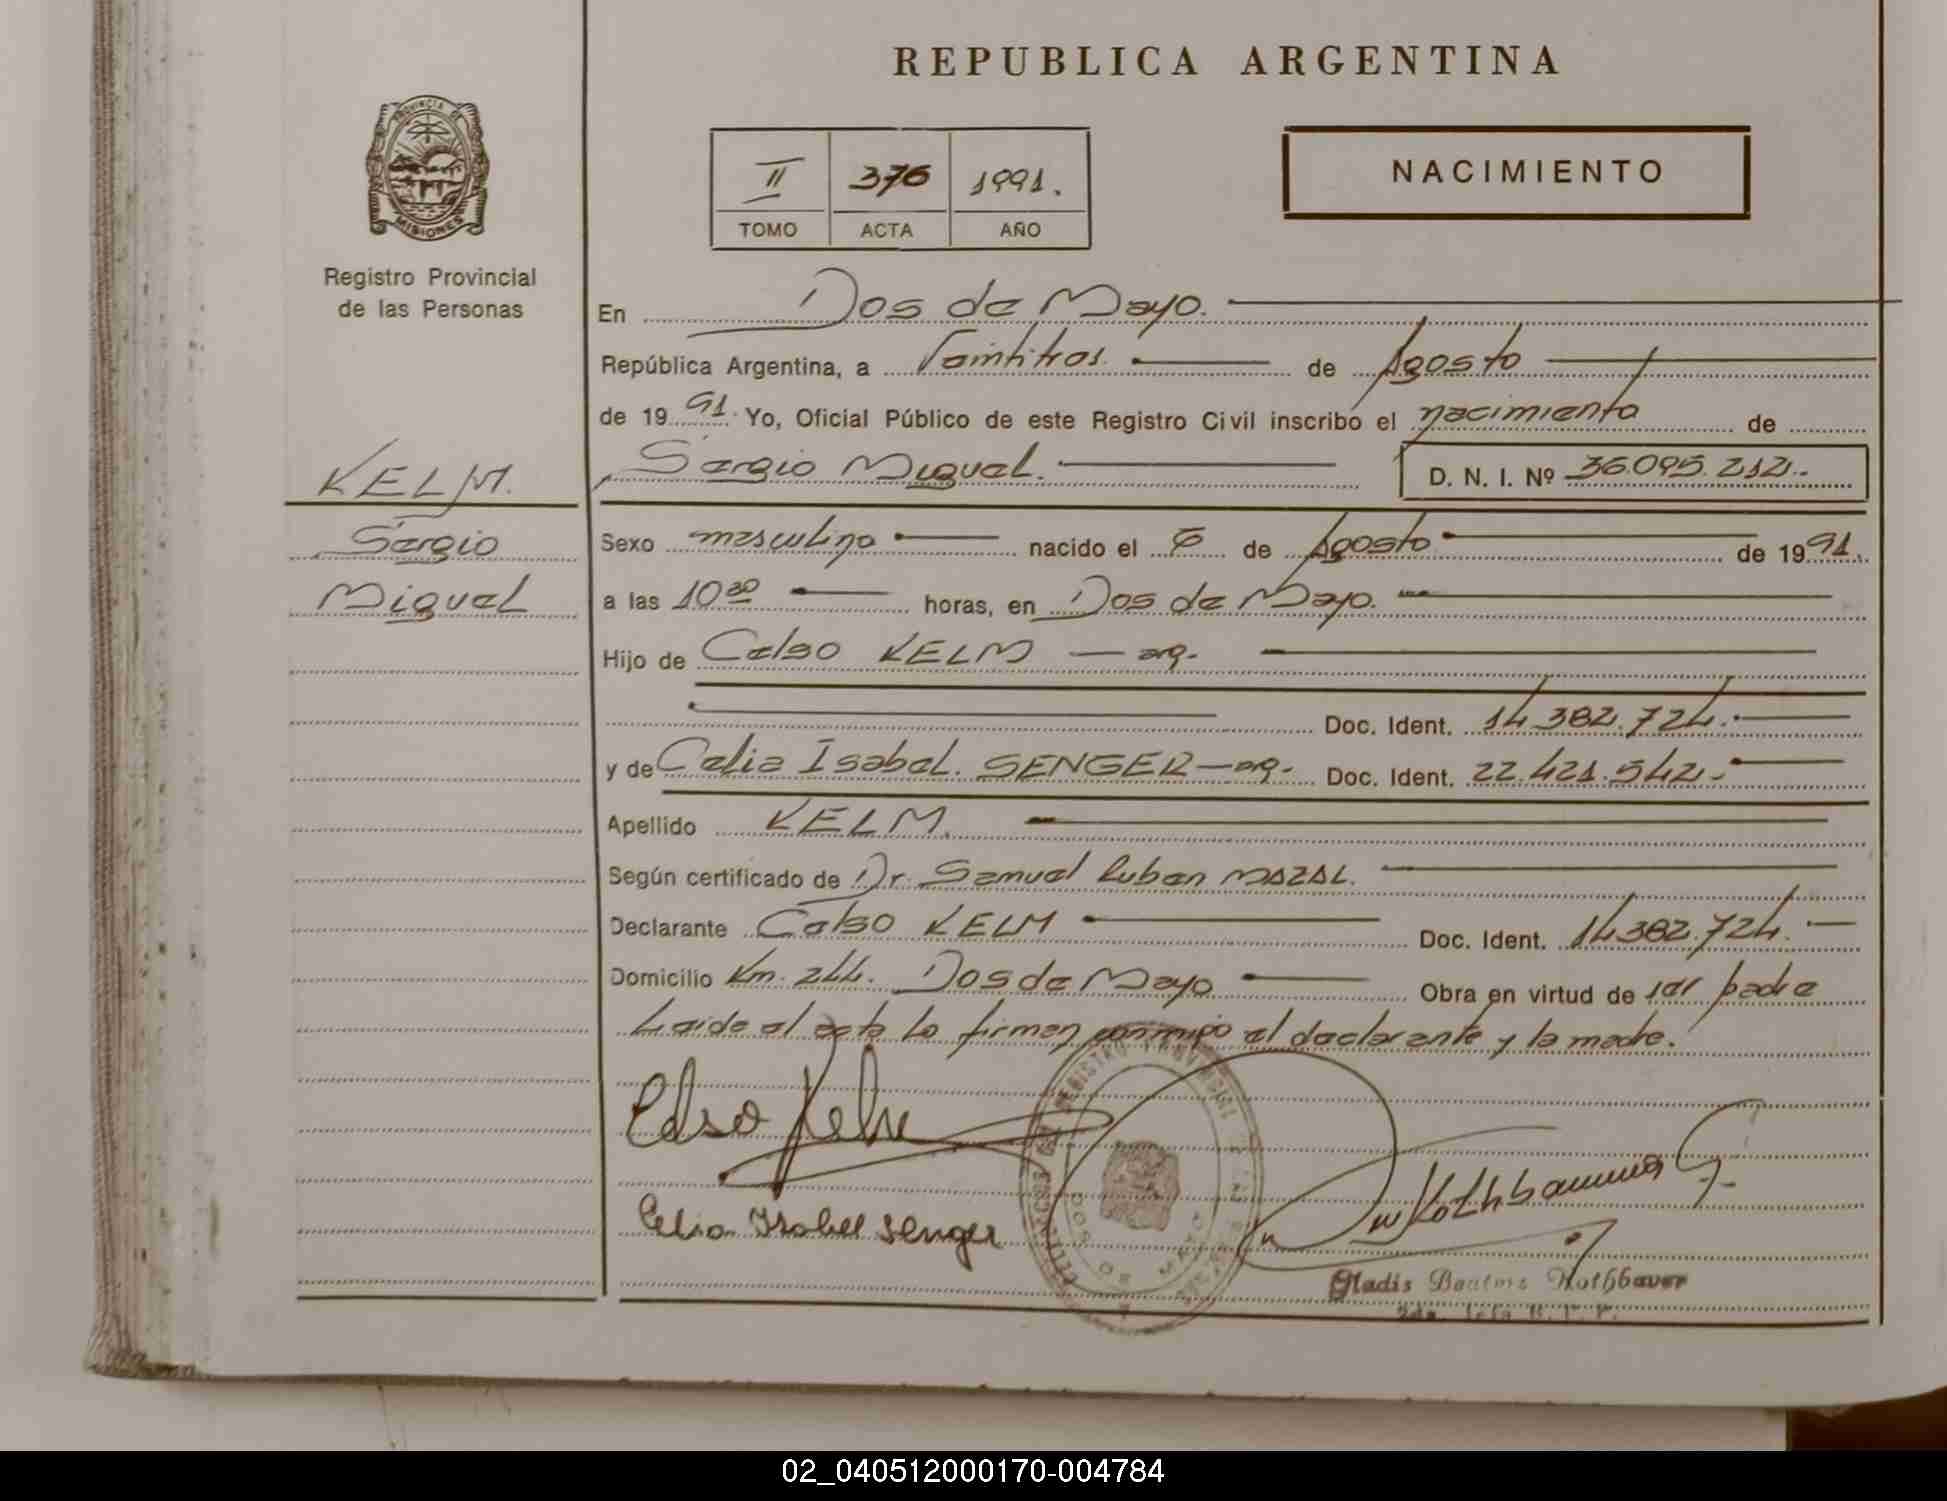 REPUBLICA ARGENTINA
PROVINCIA DE
MISIONES
Registro Provincial
de las Personas
II 376 1991.
TOMO ACTA AÑO
NACIMIENTO
En Dos de Mayo.
República Argentina, a Veintitres. de Agosto
de 1991. Yo, Oficial Público de este Registro Civil inscribo el nacimiento de
Sergio Miguel. D. N. I. Nº 36.095.212.-
KELM.
Sergio
Miguel
Sexo masculino nacido el 6 de Agosto de 1991.
a las 10 30 horas, en Dos de Mayo.
Hijo de Celso KELM — arg.
Doc. Ident. 14.382.724.-
y de Celia Isabel. SENGER — arg.- Doc. Ident. 22.421.542.-
Apellido KELM.
Según certificado de Dr. Samuel Ruben MAZAL.
Declarante Celso KELM Doc. Ident. 14.382.724.-
Domicilio Km. 244. Dos de Mayo Obra en virtud de ser padre
Leida el acta la firman conmigo el declarante y la madre.
Celso Kelm
Celia Isabel Senger
REGISTRO PROVINCIAL DE LAS PERSONAS
DOS DE MAYO
Gladis Beatriz Rothbauer
2da. Jefa R. P. P.
02_040512000170-004784